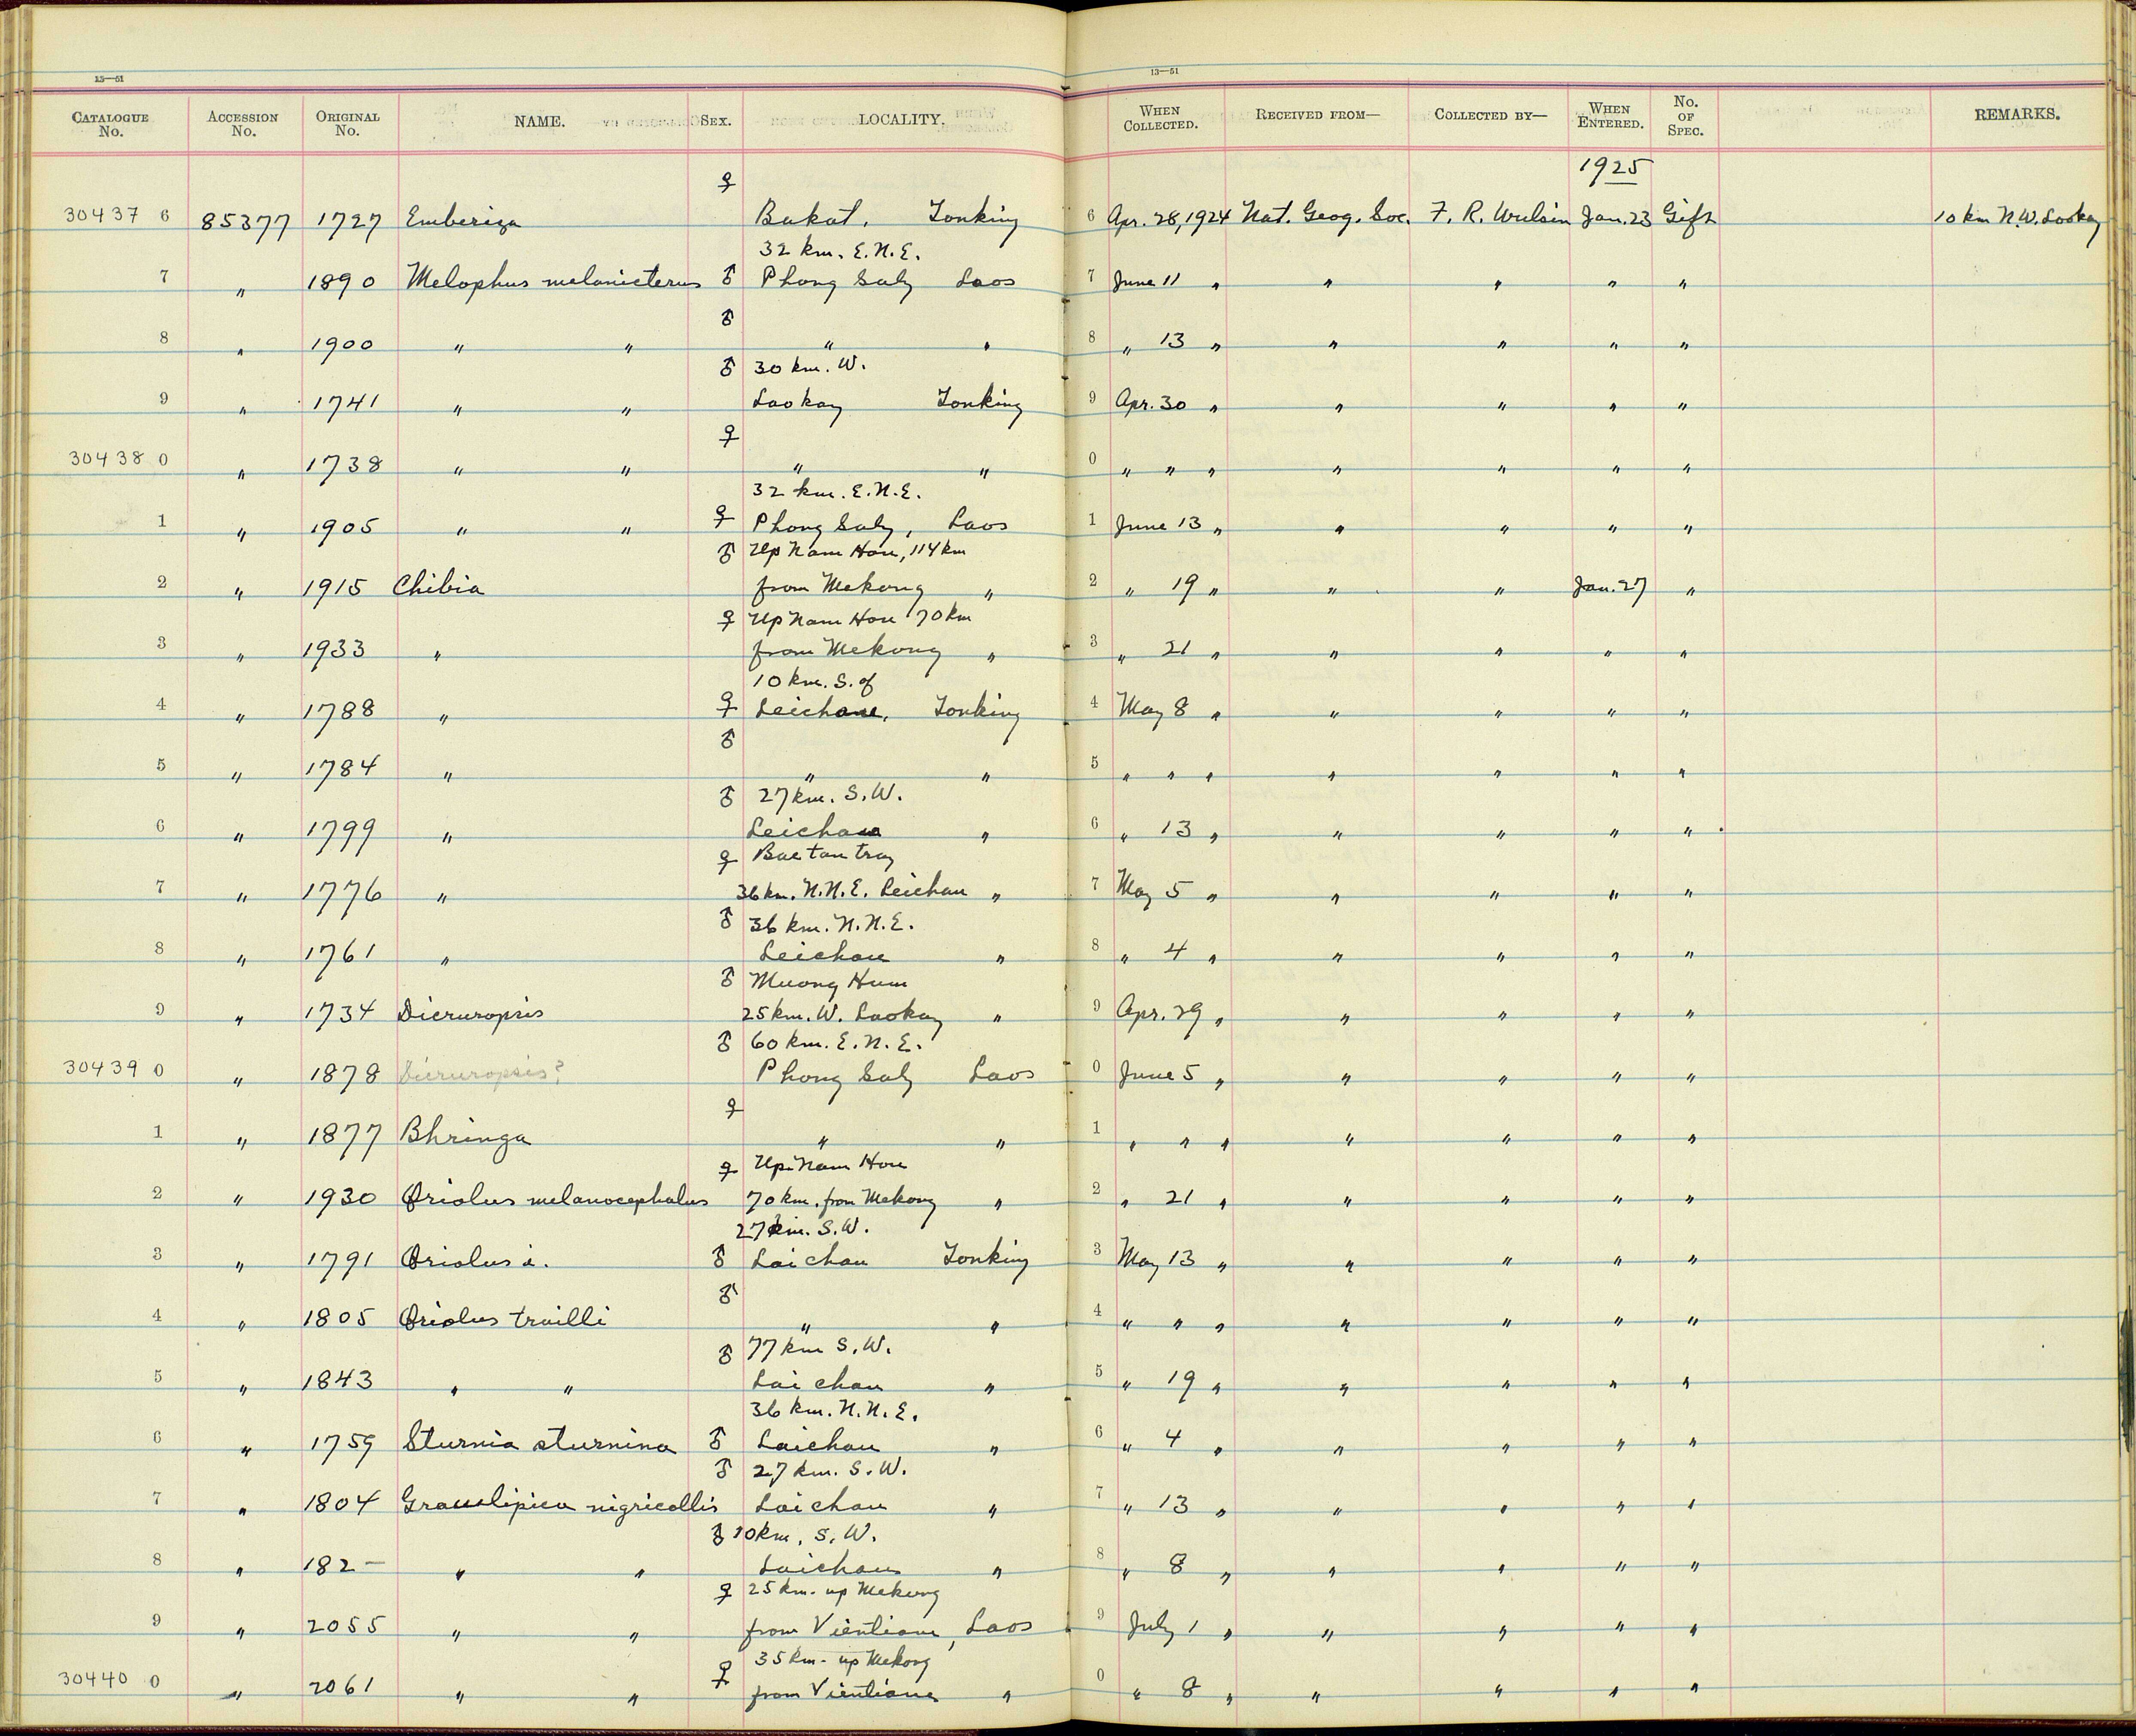 13—51 13—51
CATALOGUE No. ACCESSION No. ORIGINAL No. NAME. SEX. LOCALITY. WHEN COLLECTED. RECEIVED FROM— COLLECTED BY— WHEN ENTERED. No. OF SPEC. REMARKS.
1925
♀
30437 6 85377 1727 Emberiza Bakat, Tonking 6 Apr. 28, 1924 Nat. Geog. Soc. F. R. Wulsin Jan. 23 Gift 10 km N.W. Laokay
32 km. E.N.E.
7 " 1890 Melophus melanicterus ♂ Phong Saly Laos 7 June 11 " " " " "
♂
8 " 1900 " " " " 8 " 13 " " " " "
♂ 30 km. W.
9 " 1741 " " Laokay Tonking 9 Apr. 30 " " " " "
♀
30438 0 " 1738 " " " " 0 " " " " " " "
32 km. E.N.E.
1 " 1905 " " ♀ Phong Saly, Laos 1 June 13 " " " " "
♂ Up Nam Hou, 114 km
2 " 1915 Chibia from Mekong " 2 " 19 " " " Jan. 27 "
♀ Up Nam Hou 70 km
3 " 1933 " from Mekong " 3 " 21 " " " " "
10 km. S. of
4 " 1788 " ♀ Leichau, Tonking 4 May 8 " " " " "
♂
5 " 1784 " " " 5 " " " " " " "
♂ 27 km. S.W.
6 " 1799 " Leichau " 6 " 13 " " " " "
♀ Bac tan tray
7 " 1776 " 36 km. N.N.E. Leichau " 7 May 5 " " " " "
♂ 36 km. N.N.E.
8 " 1761 " Leichau " 8 " 4 " " " " "
♂ Muong Hum
9 " 1734 Dicruropsis 25 km. W. Laokay " 9 Apr. 29 " " " " "
♂ 60 km. E.N.E.
30439 0 " 1878 Dicruropsis? Phong Saly Laos 0 June 5 " " " " "
♀
1 " 1877 Bhringa " " 1 " " " " " " "
♀ Up Nam Hou
2 " 1930 Oriolus melanocephalus 70 km. from Mekong " 2 " 21 " " " " "
27 km. S.W.
3 " 1791 Oriolus i. ♂ Laichau Tonking 3 May 13 " " " " "
♂
4 " 1805 Oriolus trailli " " 4 " " " " " " "
♂ 77 km S.W.
5 " 1843 " " Laichau " 5 " 19 " " " " "
36 km. N.N.E.
6 " 1759 Sturnia sturnina ♂ Laichau " 6 " 4 " " " " "
♂ 27 km. S.W.
7 " 1804 Graculipica nigricollis Laichau " 7 " 13 " " " " "
♂ 10 km. S.W.
8 " 182– " " Laichau " 8 " 8 " " " " "
♀ 25 km. up Mekong
9 " 2055 " " from Vientiane, Laos 9 July 1 " " " " "
♀ 35 km. up Mekong
30440 0 " 2061 " " from Vientiane " 0 " 8 " " " " "